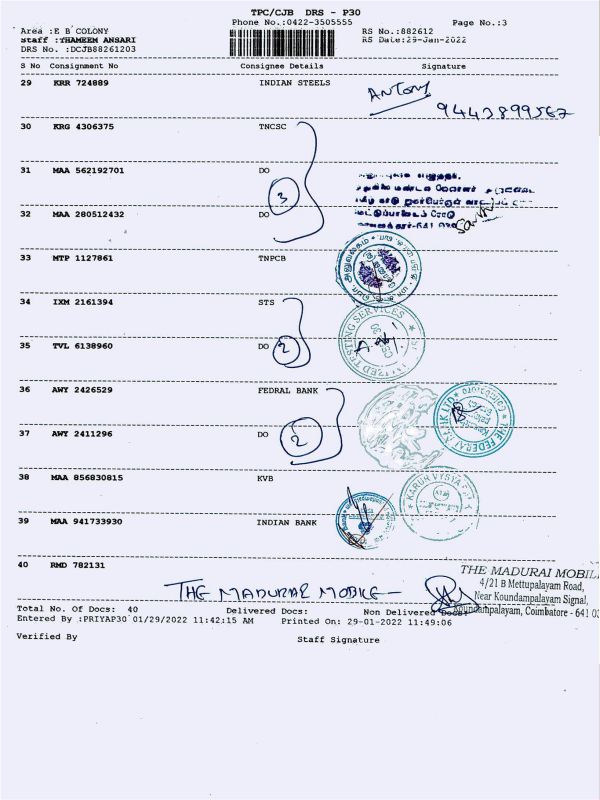 TPC/CJB DRS - P30
Phone No.:0422-3505555 Page No.:3
Area :E B COLONY RS No.:882612
Staff :THAMEEM ANSARI RS Date:29-Jan-2022
DRS No. :DCJB88261203
S No Consignment No Consignee Details Signature
29 KRR 724889 INDIAN STEELS
ANTONY
9443899567
30 KRG 4306375 TNCSC
31 MAA 562192701 DO
3
32 MAA 280512432 DO
33 MTP 1127861 TNPCB
34 IXM 2161394 STS
TESTING SERVICES
35 TVL 6138960 DO 2
36 AWY 2426529 FEDRAL BANK
THE FEDERAL BANK LTD
37 AWY 2411296 DO 2
38 MAA 856830815 KVB
KARUR VYSYA
39 MAA 941733930 INDIAN BANK
40 RMD 782131
THE MADURAI MOBILE
THE MADURAI MOBIL
4/21 B Mettupalayam Road,
Near Koundampalayam Signal,
Koundampalayam, Coimbatore - 641 03
Total No. Of Docs: 40 Delivered Docs: Non Delivered Docs:
Entered By :PRIYAP30 01/29/2022 11:42:15 AM Printed On: 29-01-2022 11:49:06
Verified By Staff Signature